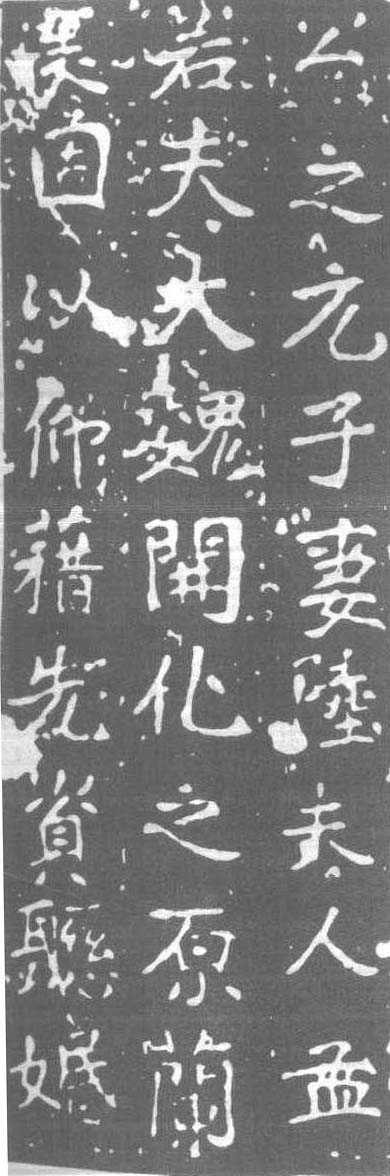 公之元子妻陸夫人孟
若夫大魏開化之原蘭
因以仰藉先資聯婚